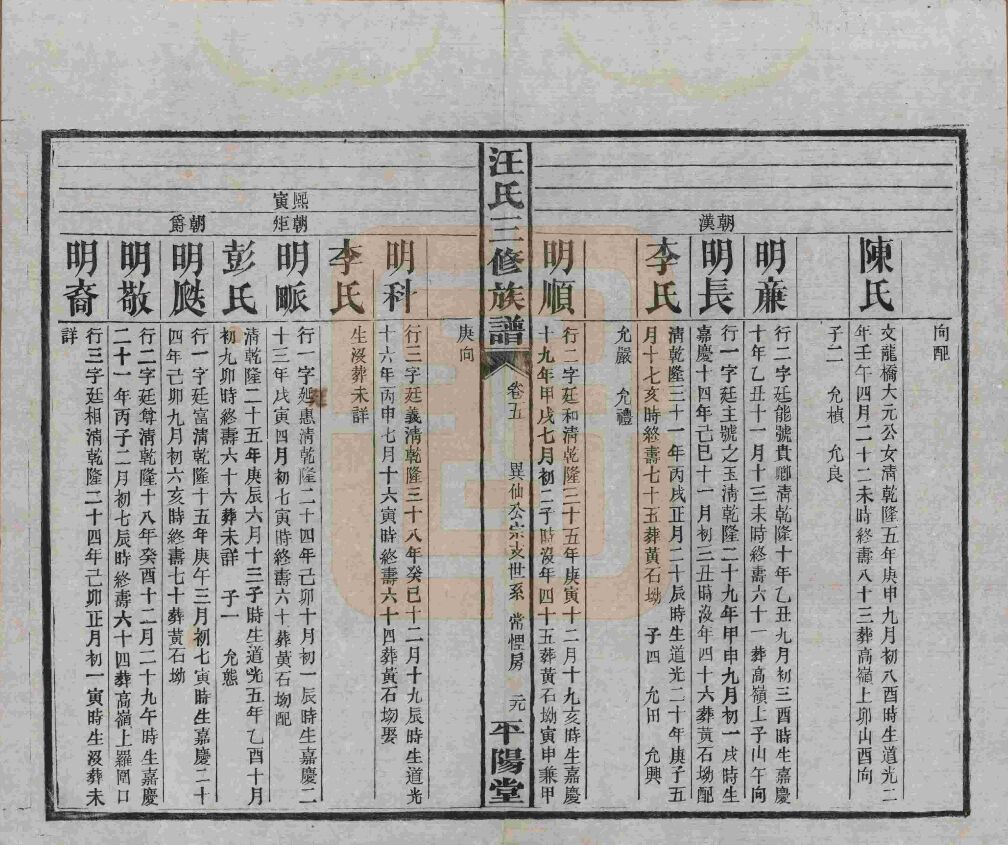 向配
陳氏
文龍橋大元公女淸乾隆五年庚申九月初八酉時生道光二
年壬午四月二十二未時終壽八十三葬高嶺上卯山酉向
子二　允楨　允良
明亷
行二字廷能號貴鄉淸乾隆十年乙丑九月初三酉時生嘉慶
十年乙丑十一月十三未時終壽六十一葬高嶺上子山午向
朝漢
明長
行一字廷主號之玉淸乾隆二十九年甲申九月初一戌時生
嘉慶十四年己巳十一月初三丑時沒年四十六葬黃石坳配
李氏
淸乾隆三十一年丙戌正月二十辰時生道光二十年庚子五
月十七亥時終壽七十五葬黃石坳　子四　允田　允興
允嚴　允禮
明順
行二字廷和淸乾隆三十五年庚寅十二月十九亥時生嘉慶
十九年甲戌七月初二子時沒年四十五葬黃石坳寅申兼甲
汪氏三修族譜
卷五
異仙公宗支世系　常惺房　元
平陽堂
庚向
明科
行三字廷義淸乾隆三十八年癸巳十二月十九辰時生道光
十六年丙申七月十六寅時終壽六十四葬黃石坳娶
李氏
生沒葬未詳
熙寅
朝矩
明畷
行一字廷惠淸乾隆二十四年己卯十月初一辰時生嘉慶二
十三年戊寅四月初七寅時終壽六十葬黃石坳配
彭氏
淸乾隆二十五年庚辰六月十三子時生道光五年乙酉十月
初九卯時終壽六十六葬未詳　子一　允態
朝爵
明颷
行一字廷富淸乾隆十五年庚午三月初七寅時生嘉慶二十
四年己卯九月初六亥時終壽七十葬黃石坳
明敬
行二字廷尊淸乾隆十八年癸酉十二月二十九午時生嘉慶
二十一年丙子二月初七辰時終壽六十四葬高嶺上羅圍口
明裔
行三字廷相淸乾隆二十四年己卯正月初一寅時生沒葬未
詳